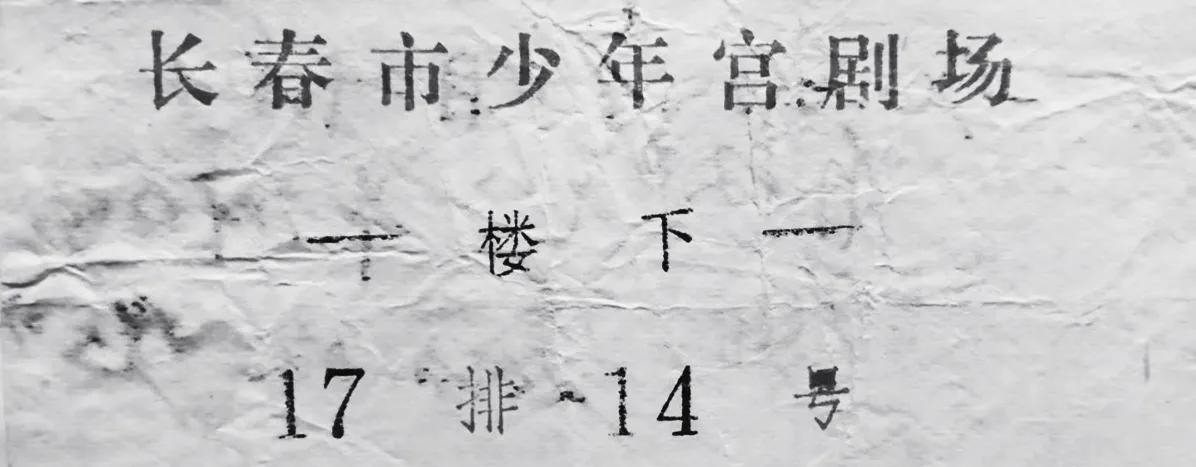 长春市少年宫剧场
— 楼下 —
17排14号